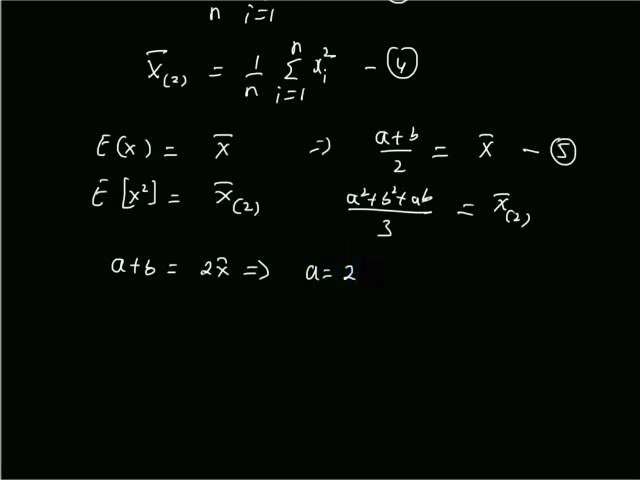 n i=1
x̄₍₂₎ = 1/n Σ_{i=1}^{n} x_i² - ④
E(x) = x̄ => (a+b)/2 = x̄ - ⑤
E[x²] = x̄₍₂₎ (a²+b²+ab)/3 = x̄₍₂₎
a+b = 2x̄ => a= 2